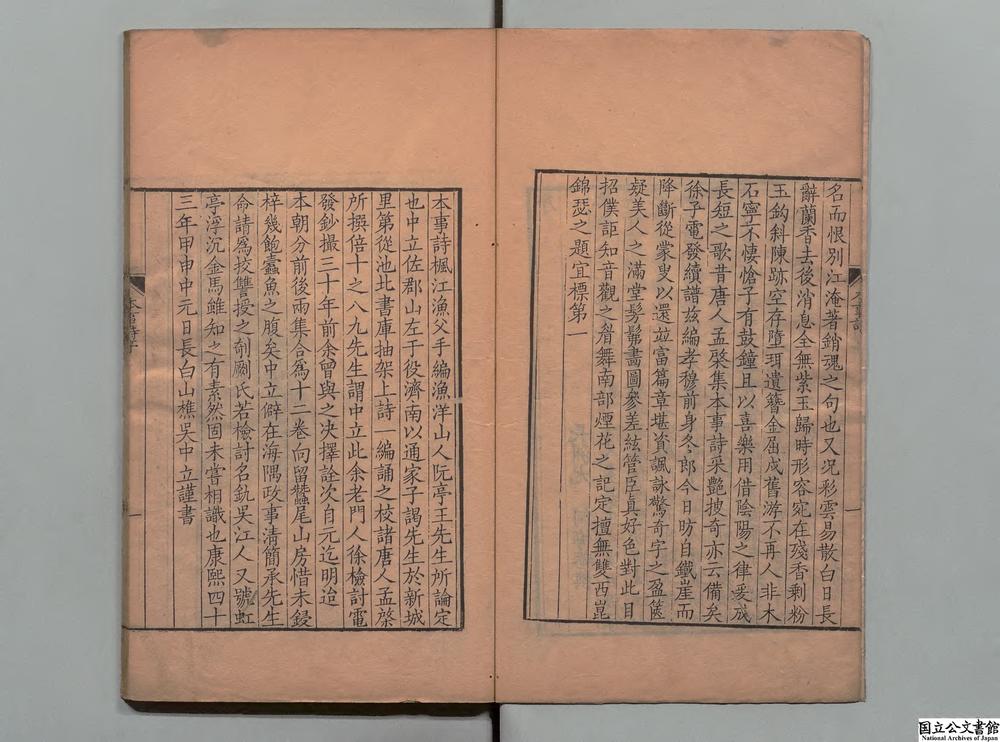 名而恨別江淹著銷魂之句也又况彩雲易散白日長
辭蘭香去後消息全無紫玉歸時形容宛在殘香剩粉
玉鈎斜陳跡空存墮珥遺簪金屈戍舊游不再人非木
石寧不悽愴子有鼓鐘且以喜樂用借陰陽之律爰成
長短之歌昔唐人孟棨集本事詩采艷披奇亦云備矣
徐子電發續譜兹編孝穆前身冬郎今日昉自鐵崖而
降斷從蒙叟以還並富篇章堪資諷詠驚奇字之盈篋
疑美人之滿堂髣髴畵圖參差絃管臣眞好色對此目
招僕詎知音觀之眷舞南部煙花之記定擅無雙西崑
錦瑟之題宜標第一
本事詩楓江漁父手編漁洋山人阮亭王先生所論定
也中立佐郡山左于役濟南以通家子謁先生於新城
里第從池北書庫抽架上詩一編誦之校諸唐人孟棨
所撰倍十之八九先生謂中立此余老門人徐檢討電
發鈔撮三十年前余曾與之决擇詮次自元迄明迨
本朝分前後兩集合爲十二卷向留蠶尾山房惜未鋟
梓幾飽蠹魚之腹矣中立僻在海隅政事清簡承先生
命請爲挍讐授之剞劂氏若檢討名釚吳江人又號虹
亭浮沉金馬雖知之有素然固未嘗相識也康熙四十
三年甲申中元日長白山樵吳中立謹書
一
国立公文書館
National Archives of Japan